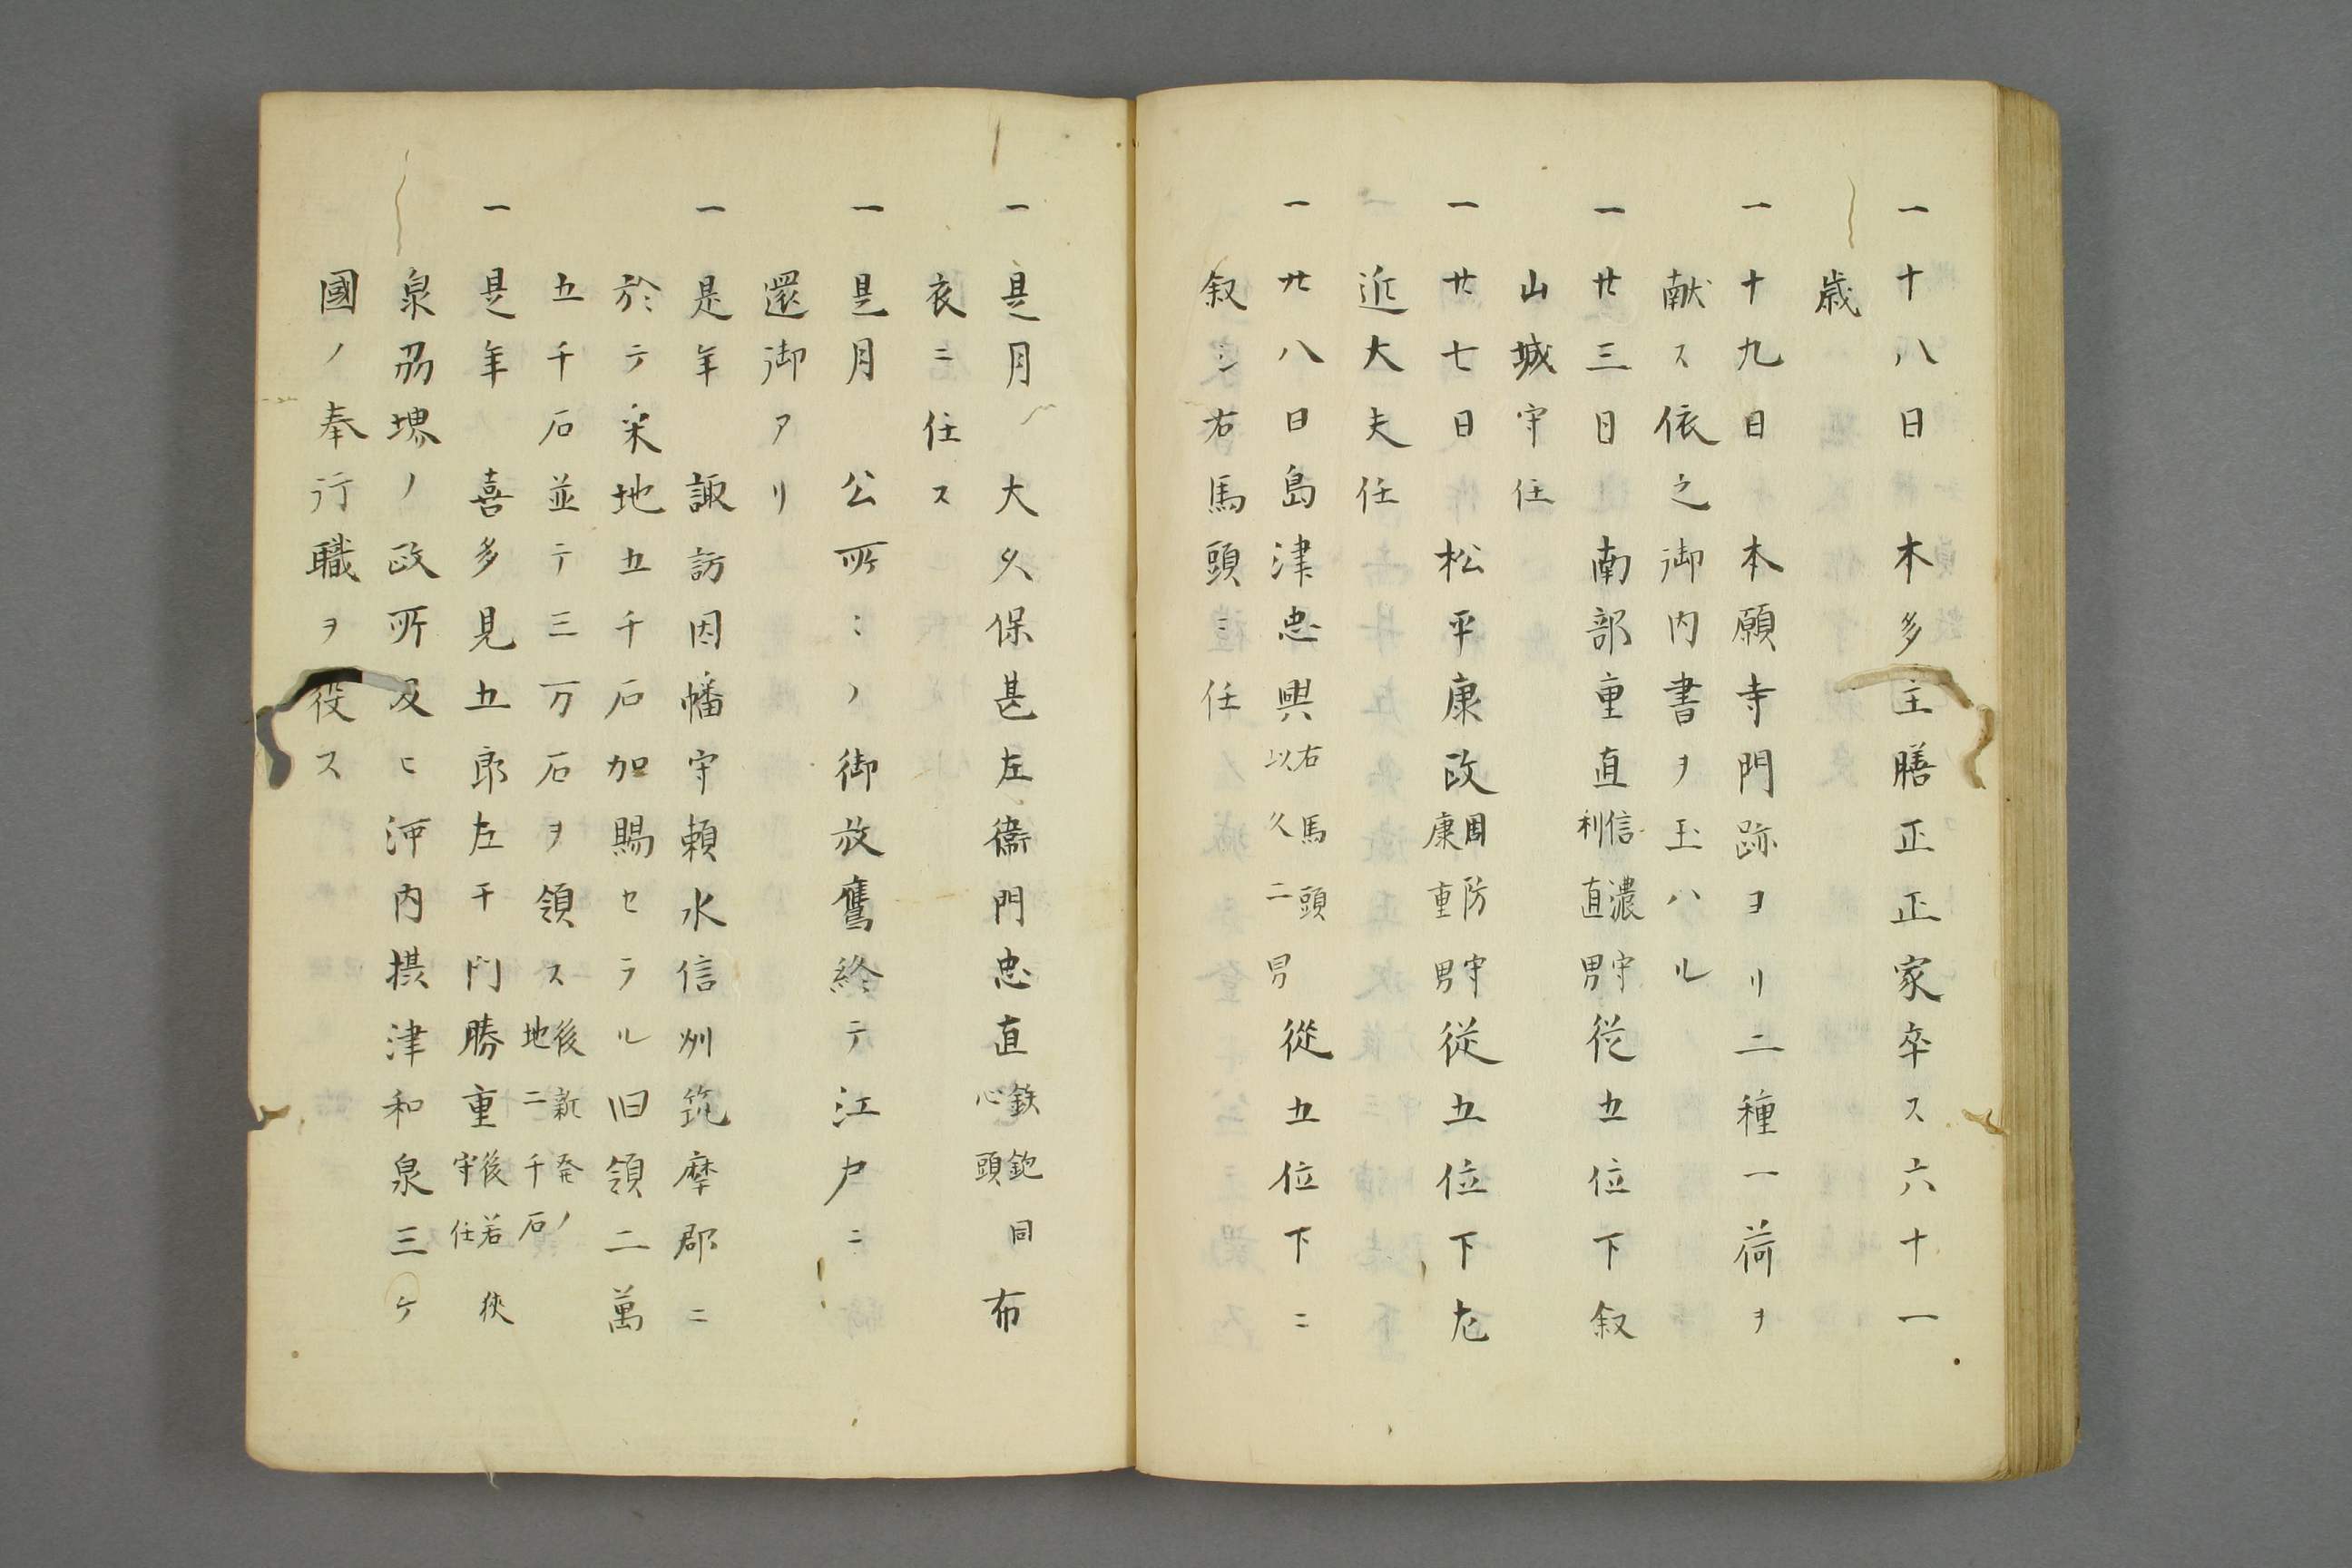 一十八日　本多主膳正正家卒ス六十一
歳
一十九日　本願寺門跡ヨリ二種一荷ヲ
献ス依之御内書ヲ玉ハル
一廿三日　南部重直信濃守利直男従五位下叙
山城守任
一廿七日　松平康政周防守康重男従五位下左
近大夫任
一廿八日島津忠興右馬頭以久二男從五位下ニ
叙シ右馬頭ニ任
一是月　大久保甚左衞門忠直鉄炮同心頭布
衣ニ任ス
一是月　公所〻ノ御放鷹終テ江戸ニ
還御アリ
一是年　諏訪因幡守頼水信州筑摩郡ニ
於テ采地五千石加賜セラル旧領二萬
五千石並テ三万石ヲ領ス後新発ノ地二千石
一是年　喜多見五郎左エ門勝重後若狹守任
泉刕堺ノ政所及ヒ河内摂津和泉三ケ
國ノ奉行職ヲ役ス